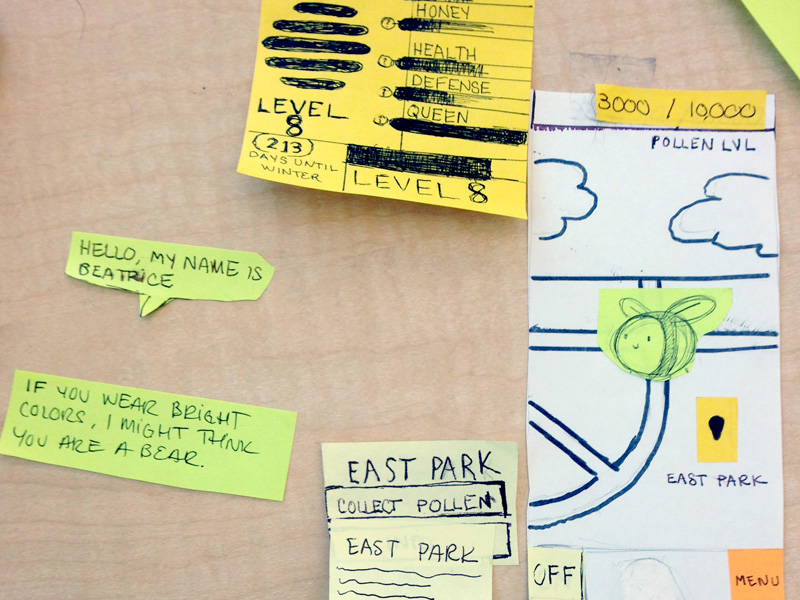 HONEY
HEALTH
DEFENSE
QUEEN
LEVEL
8
213
DAYS UNTIL
WINTER
LEVEL 8
3000 / 10,000
POLLEN LVL
HELLO, MY NAME IS
BEATRICE
IF YOU WEAR BRIGHT
COLORS, I MIGHT THINK
YOU ARE A BEAR.
EAST PARK
EAST PARK
COLLECT POLLEN
EAST PARK
OFF
MENU